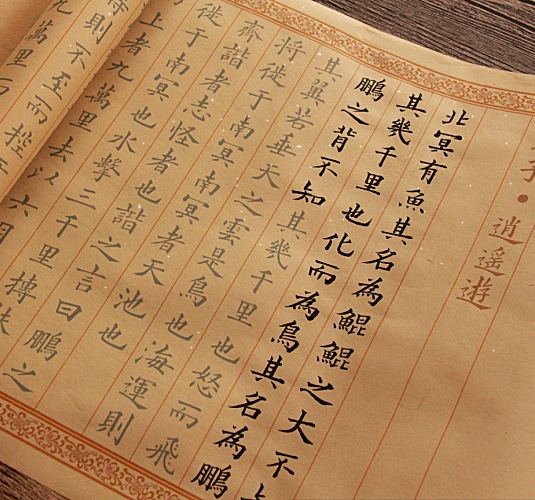 子·逍遙遊
北冥有魚其名為鯤鯤之大不
其幾千里也化而為鳥其名為鵬
鵬之背不知其幾千里也怒而飛
其翼若垂天之雲是鳥也海運則
將徙于南冥南冥者天池也
齊諧者志怪者也諧之言曰鵬之
徙于南冥也水擊三千里摶扶
上者九萬里去以六月
則不至而控
九萬里而